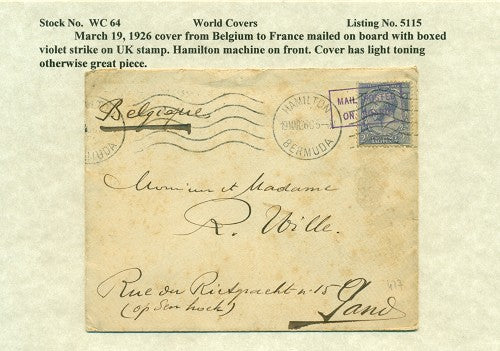 Stock No. WC 64 World Covers Listing No. 5115
March 19, 1926 cover from Belgium to France mailed on board with boxed
violet strike on UK stamp. Hamilton machine on front. Cover has light toning
otherwise great piece.
Belgique
HAMILTON
BERMUDA
MAIL
ON
Monsieur et Madame
R. Wille.
Rue du Rietgracht n° 15
(op den hoek)
Gand